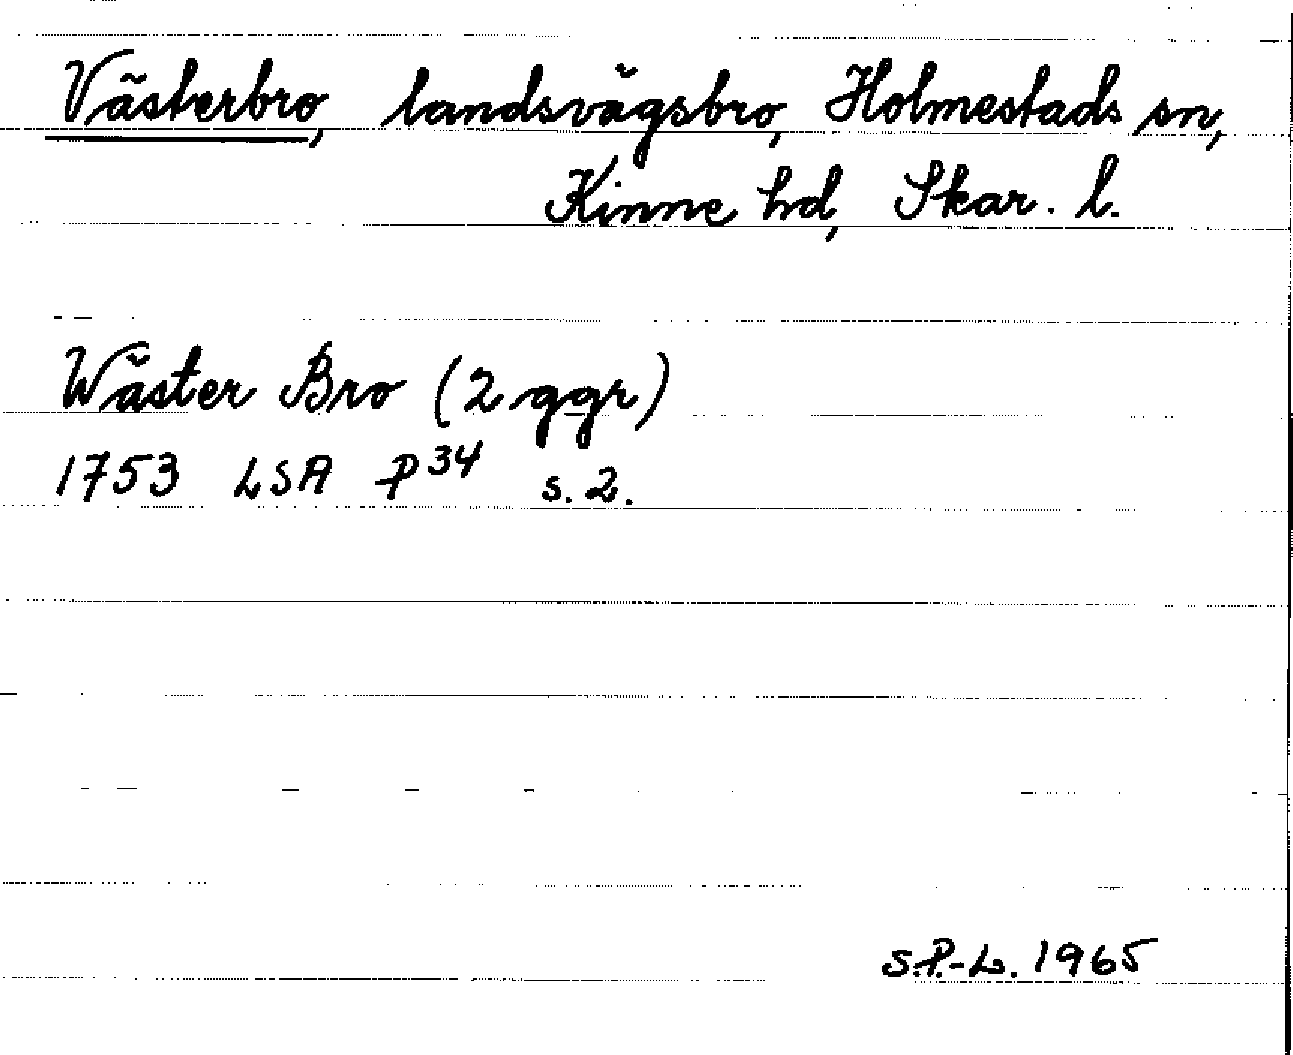 Västerbro, landsvägsbro, Holmestads sn,
Kinne hd, Skar. l.
Wäster Bro (2 ggr)
1753 LSA P34 s. 2.
S.P.-L. 1965